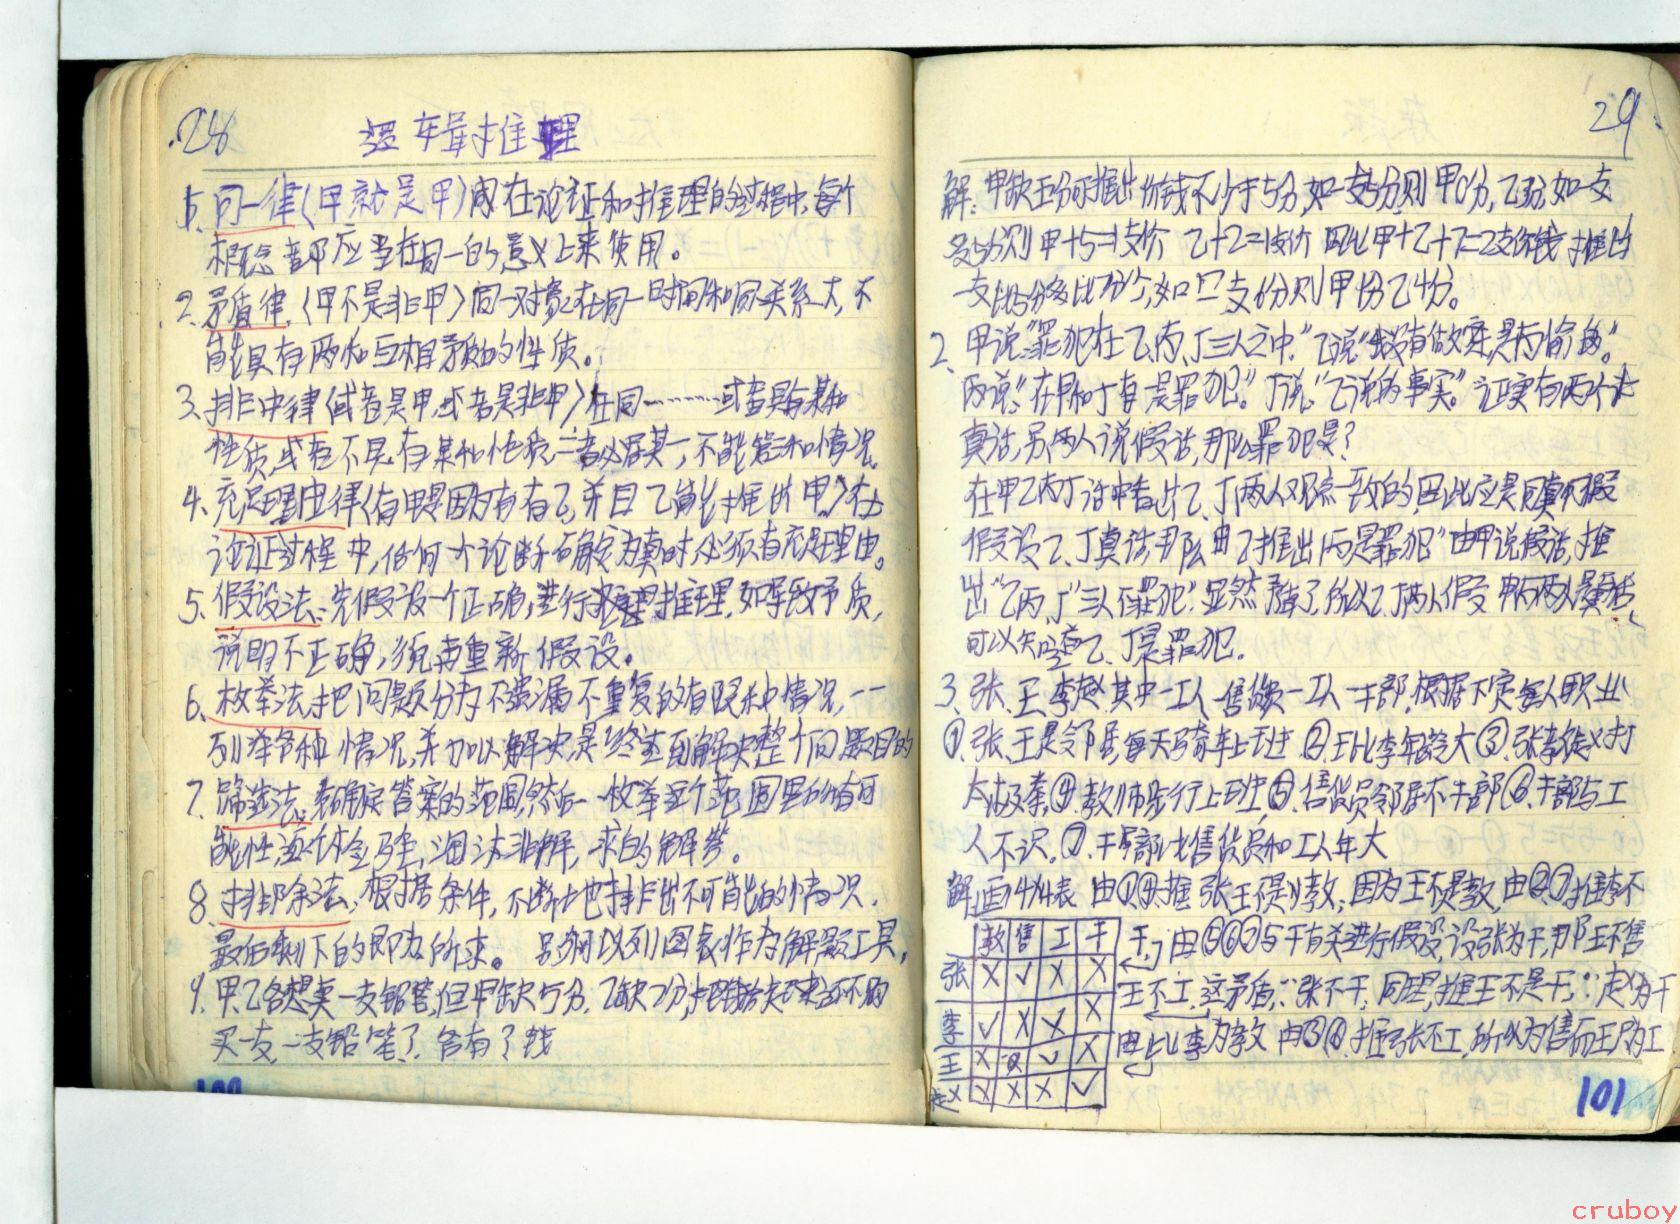 28
逻辑推理
1、同一律(甲就是甲)在论证和推理的过程中,每个
概念都应当在同一的意义上来使用。
2、矛盾律,(甲不是非甲)同一对象在同一时间和同一关系
能具有两种互相矛盾的性质。
3、排中律(或者是甲,或者是非甲)在同………或者具有某种
性质,或者不具有某种性质二者必居其一,不能第三种情况。
4、充足理由律(有甲是因为有乙,并且乙能推出甲)在
论证过程中,任何一个论断确定为真时,必须有充足理由。
5、假设法:先假设一个正确,进行推理,如导致矛盾,
说明不正确,须再重新假设。
6、枚举法,把问题分为不遗漏不重复的有限种情况,一一
列举各种情况,并加以解决最终达到解决整个问题目的
7、筛选法:先确定答案的范围,然后一一枚举这个范围里的所有可
能性,逐个检验,淘汰非解,求的解答。
8、排除法:根据条件,不断地排出不可能的情况,
最后剩下的即为所求。 另外可以列图表作为解题工具,
9、甲、乙各想买一支铅笔,但甲缺5分,乙缺2分,
买一支,一支铅笔?各有?钱
29
解:甲缺五分可推出价钱不少于5分,如一支5分,则甲0分,乙3分,如一支
多5分则甲+5=1支价 乙+2=1支价 因此甲+乙+7=2支价钱 推出
一支比5分多比7分少,如一支6分则甲1分乙4分。
2、甲说“罪犯在乙、丙、丁三人之中.”乙说“我没有做案,是丙偷的”。
丙说:“在甲和丁中有一是罪犯”。丁说:“乙说的事实”。证实有两个人
真话,另两人说假话,那么罪犯是?
在甲乙丙丁话中看出乙、丁两人观点一致的,因此应是同真同假
假设乙、丁真话那么由乙推出“丙是罪犯”由甲说假话,推
出“乙丙、丁”三人不罪犯”.显然矛盾了,所以乙、丁两人假
可以知 丁是罪犯.
3、张、王、李赵,其中一工人一售货员一工人一干部,根据下定每人职业
①、张、王是邻居,每天骑车上班 ②王比李年龄大③、张教徒赵打
太极拳,④教师步行上班⑤、售货员邻居不干部⑥、干部与工
人不识。⑦、干部比售货员和工人年大
解画4×4表 由①、④推张王不是教;因为王不是教,由②、⑦推李不
教 售 工 干
张 × ✓ × ×
李 ✓ × × ×
王 × × ✓ ×
赵 × × × ✓
干,由⑤⑥⑦与干有关进行假设,设张为干,那王不售
王不工,这矛盾,∵张不干,同理,推王不是干,∵赵为干
由此李为教 由③⑥,推张不工,所以为售而王为工
101
cruboy